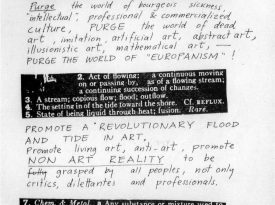 Purge the world of bourgeois sickness,
"intellectual", professional & commercialized
culture, PURGE the world of dead
art, imitation, artificial art, abstract art,
illusionistic art, mathematical art, —
PURGE THE WORLD OF "EUROPANISM" !
2. Act of flowing: a continuous moving
on or passing by, as of a flowing stream;
a continuing succession of changes.
3. A stream; copious flow; flood; outflow.
4. The setting in of the tide toward the shore. Cf. REFLUX.
5. State of being liquid through heat; fusion. Rare.
PROMOTE A REVOLUTIONARY FLOOD
AND TIDE IN ART,
Promote living art, anti-art, promote
NON ART REALITY to be
grasped by all peoples, not only
critics, dilettantes and professionals.
7. Chem. & Metal. a Any substance or mixture used to